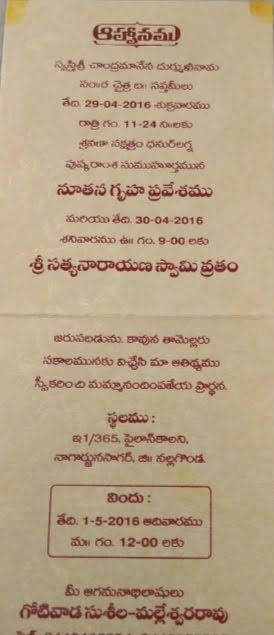 ఆహ్వానము
స్వస్తిశ్రీ చాంద్రమానేన దుర్ముఖినామ
సం॥ర చైత్ర బ॥ సప్తమీలు
తేది. 29-04-2016 శుక్రవారము
రాత్రి గం. 11-24 ని॥లకు
శ్రవణా నక్షత్రం ధనుర్‌లగ్న
పుష్కరాంశ సుముహూర్తమున
నూతన గృహ ప్రవేశము
మరియు తేది. 30-04-2016
శనివారము ఉ॥ గం. 9-00 లకు
శ్రీ సత్యనారాయణ స్వామి వ్రతం
జరుపబడును. కావున తామెల్లరు
సకాలమునకు విచ్చేసి మా ఆతిథ్యము
స్వీకరించి మమ్మానందింపజేయ ప్రార్థన.
స్థలము :
ఇ1/365, పైలాన్‌కాలని,
నాగార్జునసాగర్, జి॥ నల్లగొండ.
విందు :
తేది. 1-5-2016 ఆదివారము
మ॥ గం. 12-00 లకు
మీ ఆగమనాభిలాషులు
గోటివాడ సుశీల-మల్లేశ్వరరావు